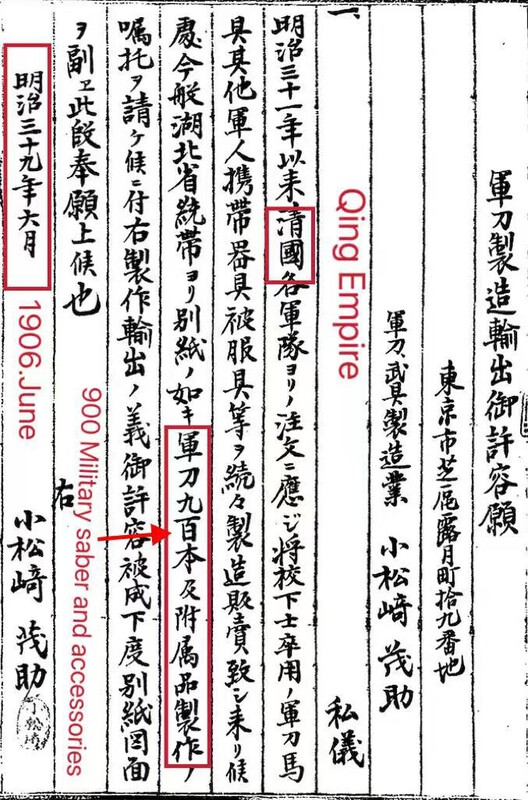 軍刀製造輸出御許容願
東京市芝區露月町拾九番地
軍刀、武具製造業 小松﨑茂助
一、 私儀
Qing Empire
明治三十一年以来、清國各軍隊ヨリノ注文ニ應ジ将校下士卒用ノ軍刀馬
具其他軍人携帯器具被服具等ヲ続々製造販賣致シ来リ候
處今般湖北省統帯ヨリ別紙ノ如キ軍刀九百本及附属品製作ノ
嘱托ヲ請ケ候ニ付右製作輸出ノ義御許容被成下度別紙図面
ヲ副ヱ此段奉願上候也
900 Military saber and accessories
右
明治三十九年六月
1906.June
小松﨑茂助